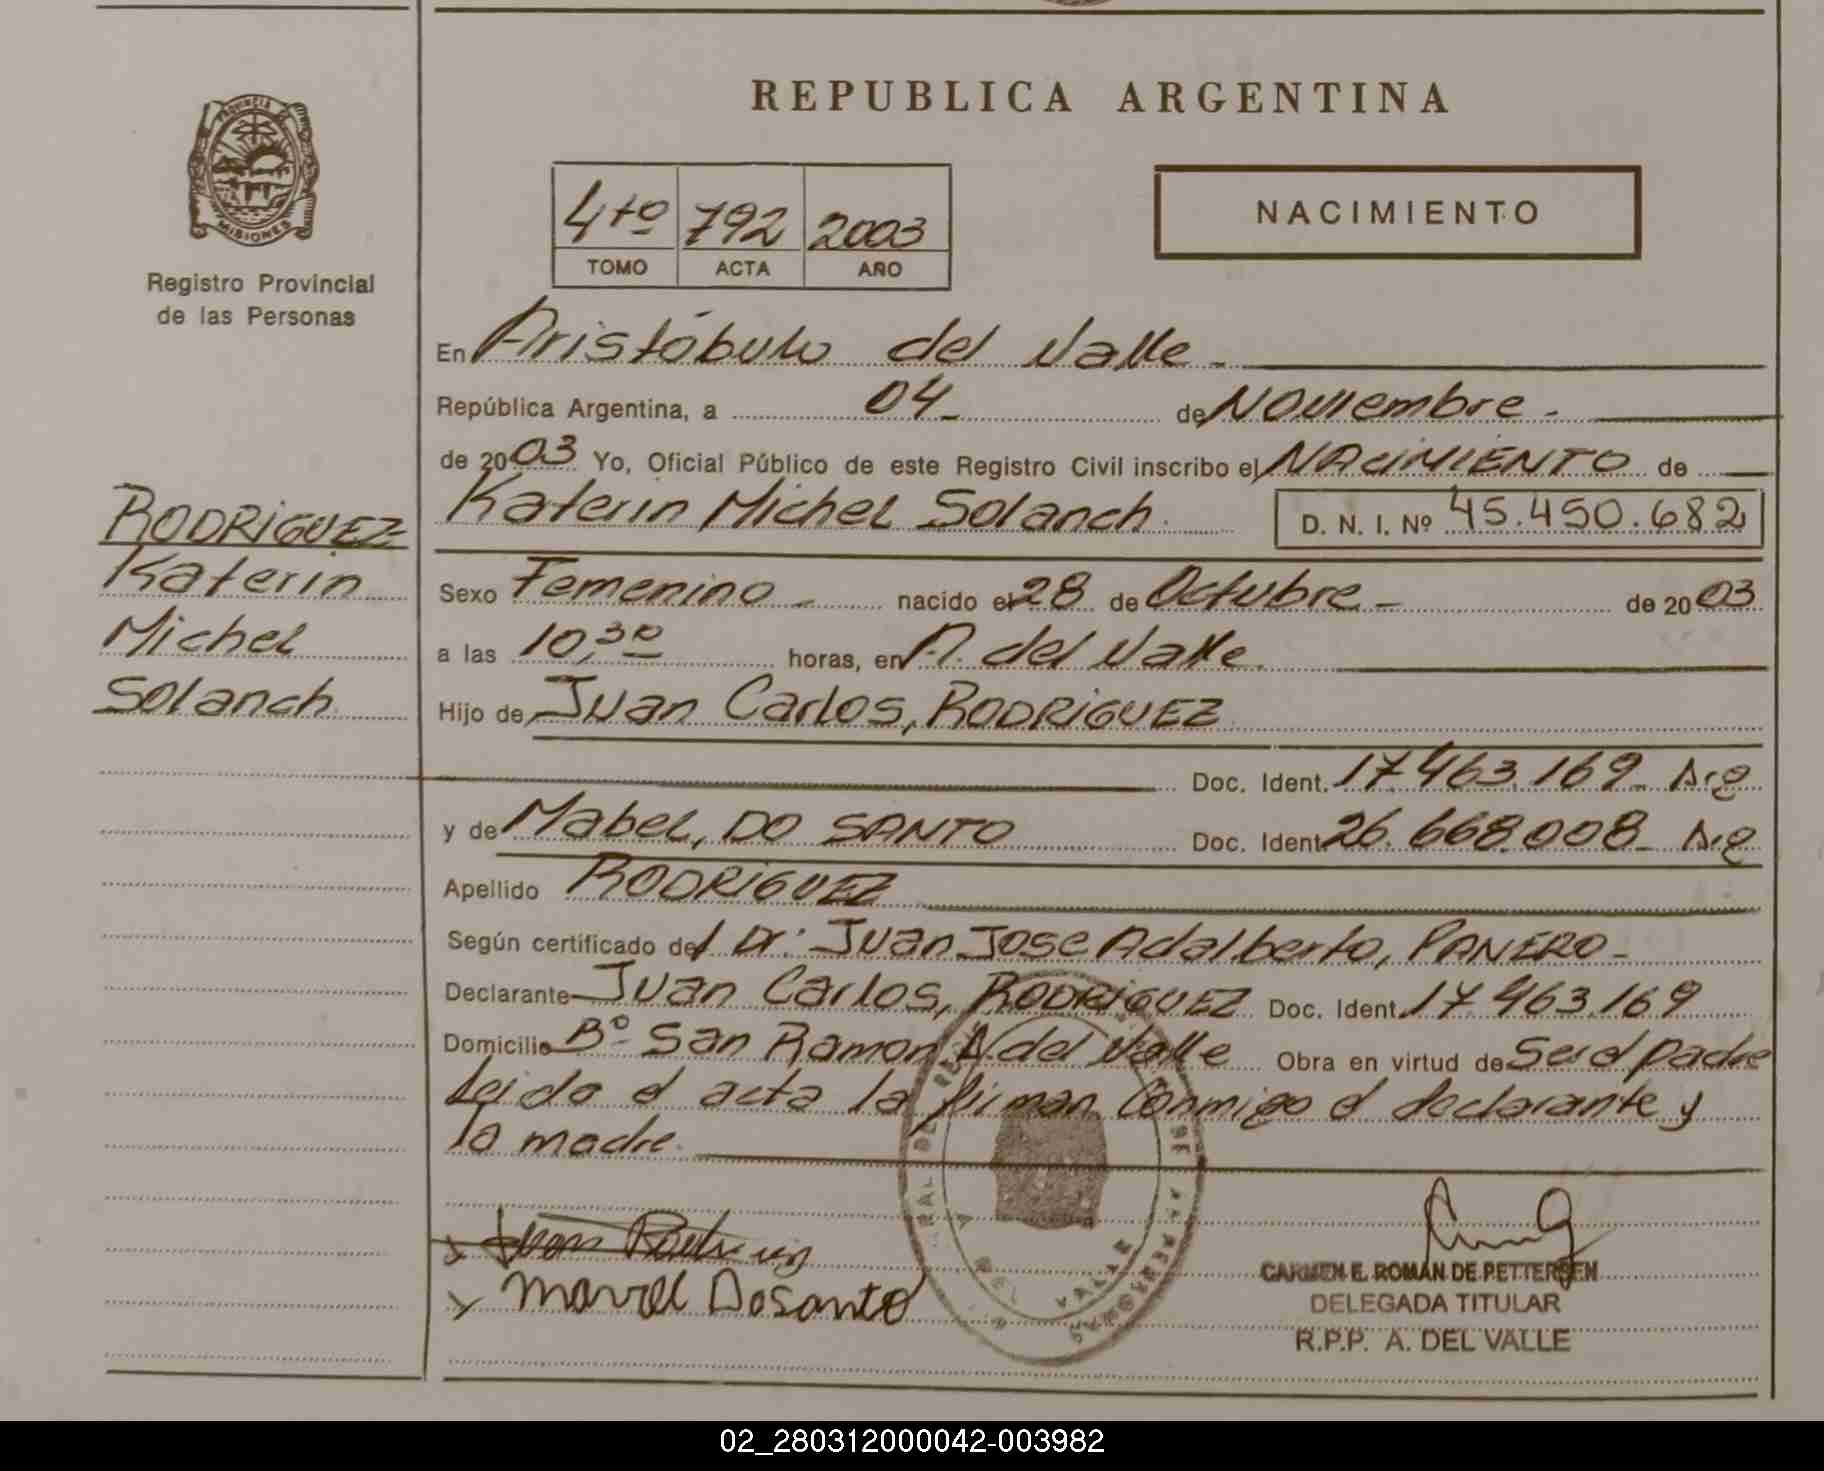 REPUBLICA ARGENTINA
PROVINCIA
MISIONES
Registro Provincial
de las Personas
4to 792 2003
TOMO ACTA AÑO
NACIMIENTO
En Aristóbulo del Valle -
República Argentina, a 04 - de Noviembre -
de 2003 Yo, Oficial Público de este Registro Civil inscribo el NACIMIENTO de
Katerin Michel Solanch D. N. I. Nº 45.450.682
RODRIGUEZ
Katerin
Michel
Solanch
Sexo Femenino - nacido el 28 de Octubre - de 2003
a las 10,30 horas, en A. del Valle
Hijo de Juan Carlos, RODRIGUEZ
Doc. Ident. 17.463.169 - Arg
y de Mabel, DO SANTO Doc. Ident. 26.668.008 - Arg
Apellido RODRIGUEZ
Según certificado del Dr: Juan Jose Adalberto, PANERO -
Declarante Juan Carlos, RODRIGUEZ Doc. Ident. 17.463.169
Domicilio Bº San Ramon A. del Valle Obra en virtud de Ser el padre
Leida el acta la firman Conmigo el declarante y
la madre.
Juan
Marvel Dosanto
DEL VALLE
CARMEN E. ROMÁN DE PETTERSEN
DELEGADA TITULAR
R.P.P. A. DEL VALLE
02_280312000042-003982